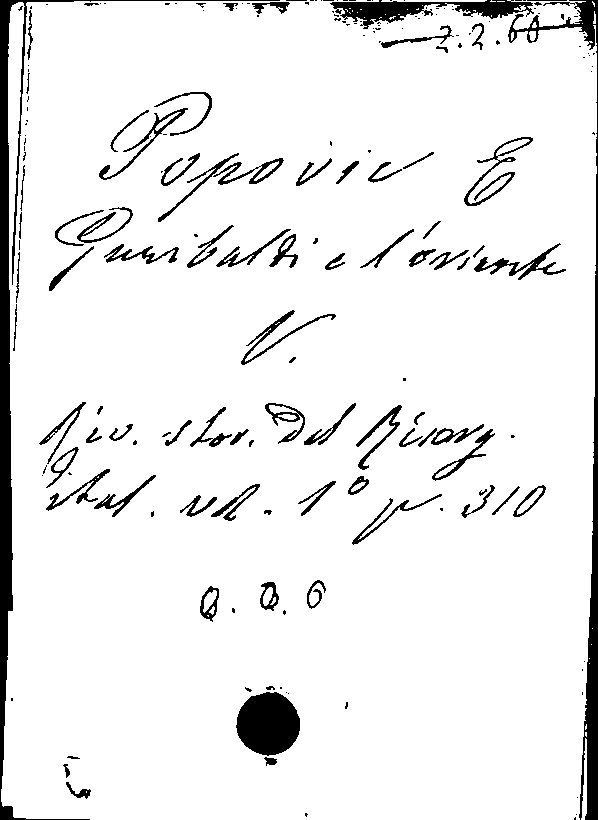 2.2.60
Popovic E
Garibaldi e l'oriente
V.
Riv. stor. del Risorg.
ital. vol. 1º p. 310
Q. Q. 6